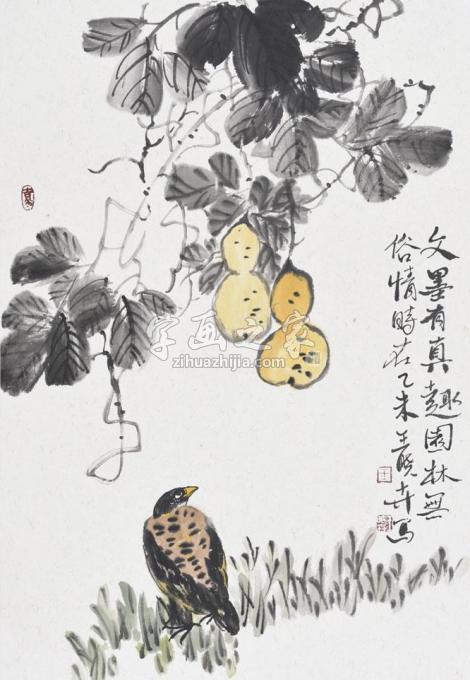 文墨有真趣園林無
俗情時在乙未王曉卉寫
字画之家
zihuazhijia.com